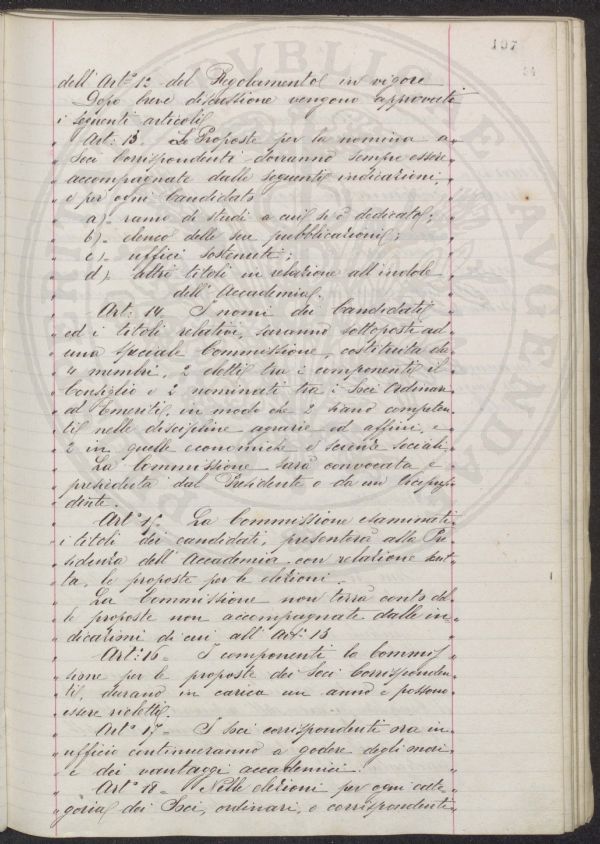 197
94
dell'Art.° 12 del Regolamento in vigore
Dopo breve discussione vengono approvati
i seguenti articoli
„ Art: 13. Le Proposte per la nomina a „
„ Soci Corrispondenti dovranno sempre essere „
„ accompagnate dalle seguenti indicazioni, „
„ e per ogni Candidato „
„ a) - ramo di studi a cui si è dedicato; „
„ b) - elenco delle sue pubblicazioni; „
„ c) - uffici sostenuti; „
„ d) - altri titoli in relazione all'indole „
„ dell'Accademia. „
„ Art: 14. I nomi dei Candidati „
„ ed i titoli relativi, saranno sottoposti ad „
„ una speciale Commissione, costituita da „
„ 4 membri, 2 eletti tra i componenti il „
„ Consiglio e 2 nominati tra i Soci Ordinari „
„ ed Emeriti, in modo che 2 siano competen- „
„ ti nelle discipline agrarie ed affini, e „
„ 2 in quelle economiche e scienze sociali. „
„ La Commissione sarà convocata e „
„ presieduta dal Presidente o da un Vicepresi- „
„ dente. „
„ Art.° 15. La Commissione esaminati „
„ i titoli dei candidati, presenterà alla Pre- „
„ sidenza dell'Accademia con relazione scrit- „
„ ta, le proposte per le elezioni. „
„ La Commissione non terrà conto del- „
„ le proposte non accompagnate dalle in- „
„ dicazioni di cui all'Art: 13 „
„ Art: 16 - I componenti la Commis- „
„ sione per le proposte dei Soci Corrisponden- „
„ ti, durano in carica un anno e possono „
„ essere rieletti. „
„ Art.° 17 - I soci corrispondenti ora in „
„ ufficio continueranno a godere degli onori „
„ e dei vantaggi accademici. „
„ Art.° 18 - Nelle elezioni per ogni cate- „
„ goria dei Soci, ordinari, o corrispondenti „